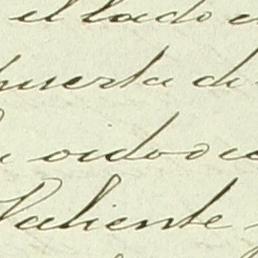 el lado e
puerta de
oidos de
Valiente